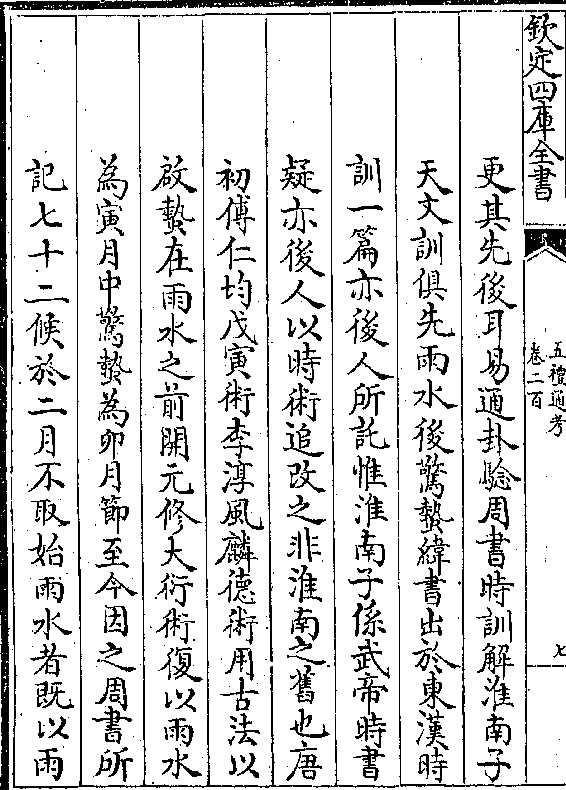 欽定四庫全書
五禮通考
卷二百
七
更其先後耳易通卦驗周書時訓解淮南子
天文訓俱先雨水後驚蟄緯書出於東漢時
訓一篇亦後人所託惟淮南子係武帝時書
疑亦後人以時術追改之非淮南之舊也唐
初傅仁均戊寅術李淳風麟德術用古法以
啟蟄在雨水之前開元修大衍術復以雨水
為寅月中驚蟄為卯月節至今因之周書所
記七十二候於二月不取始雨水者既以雨